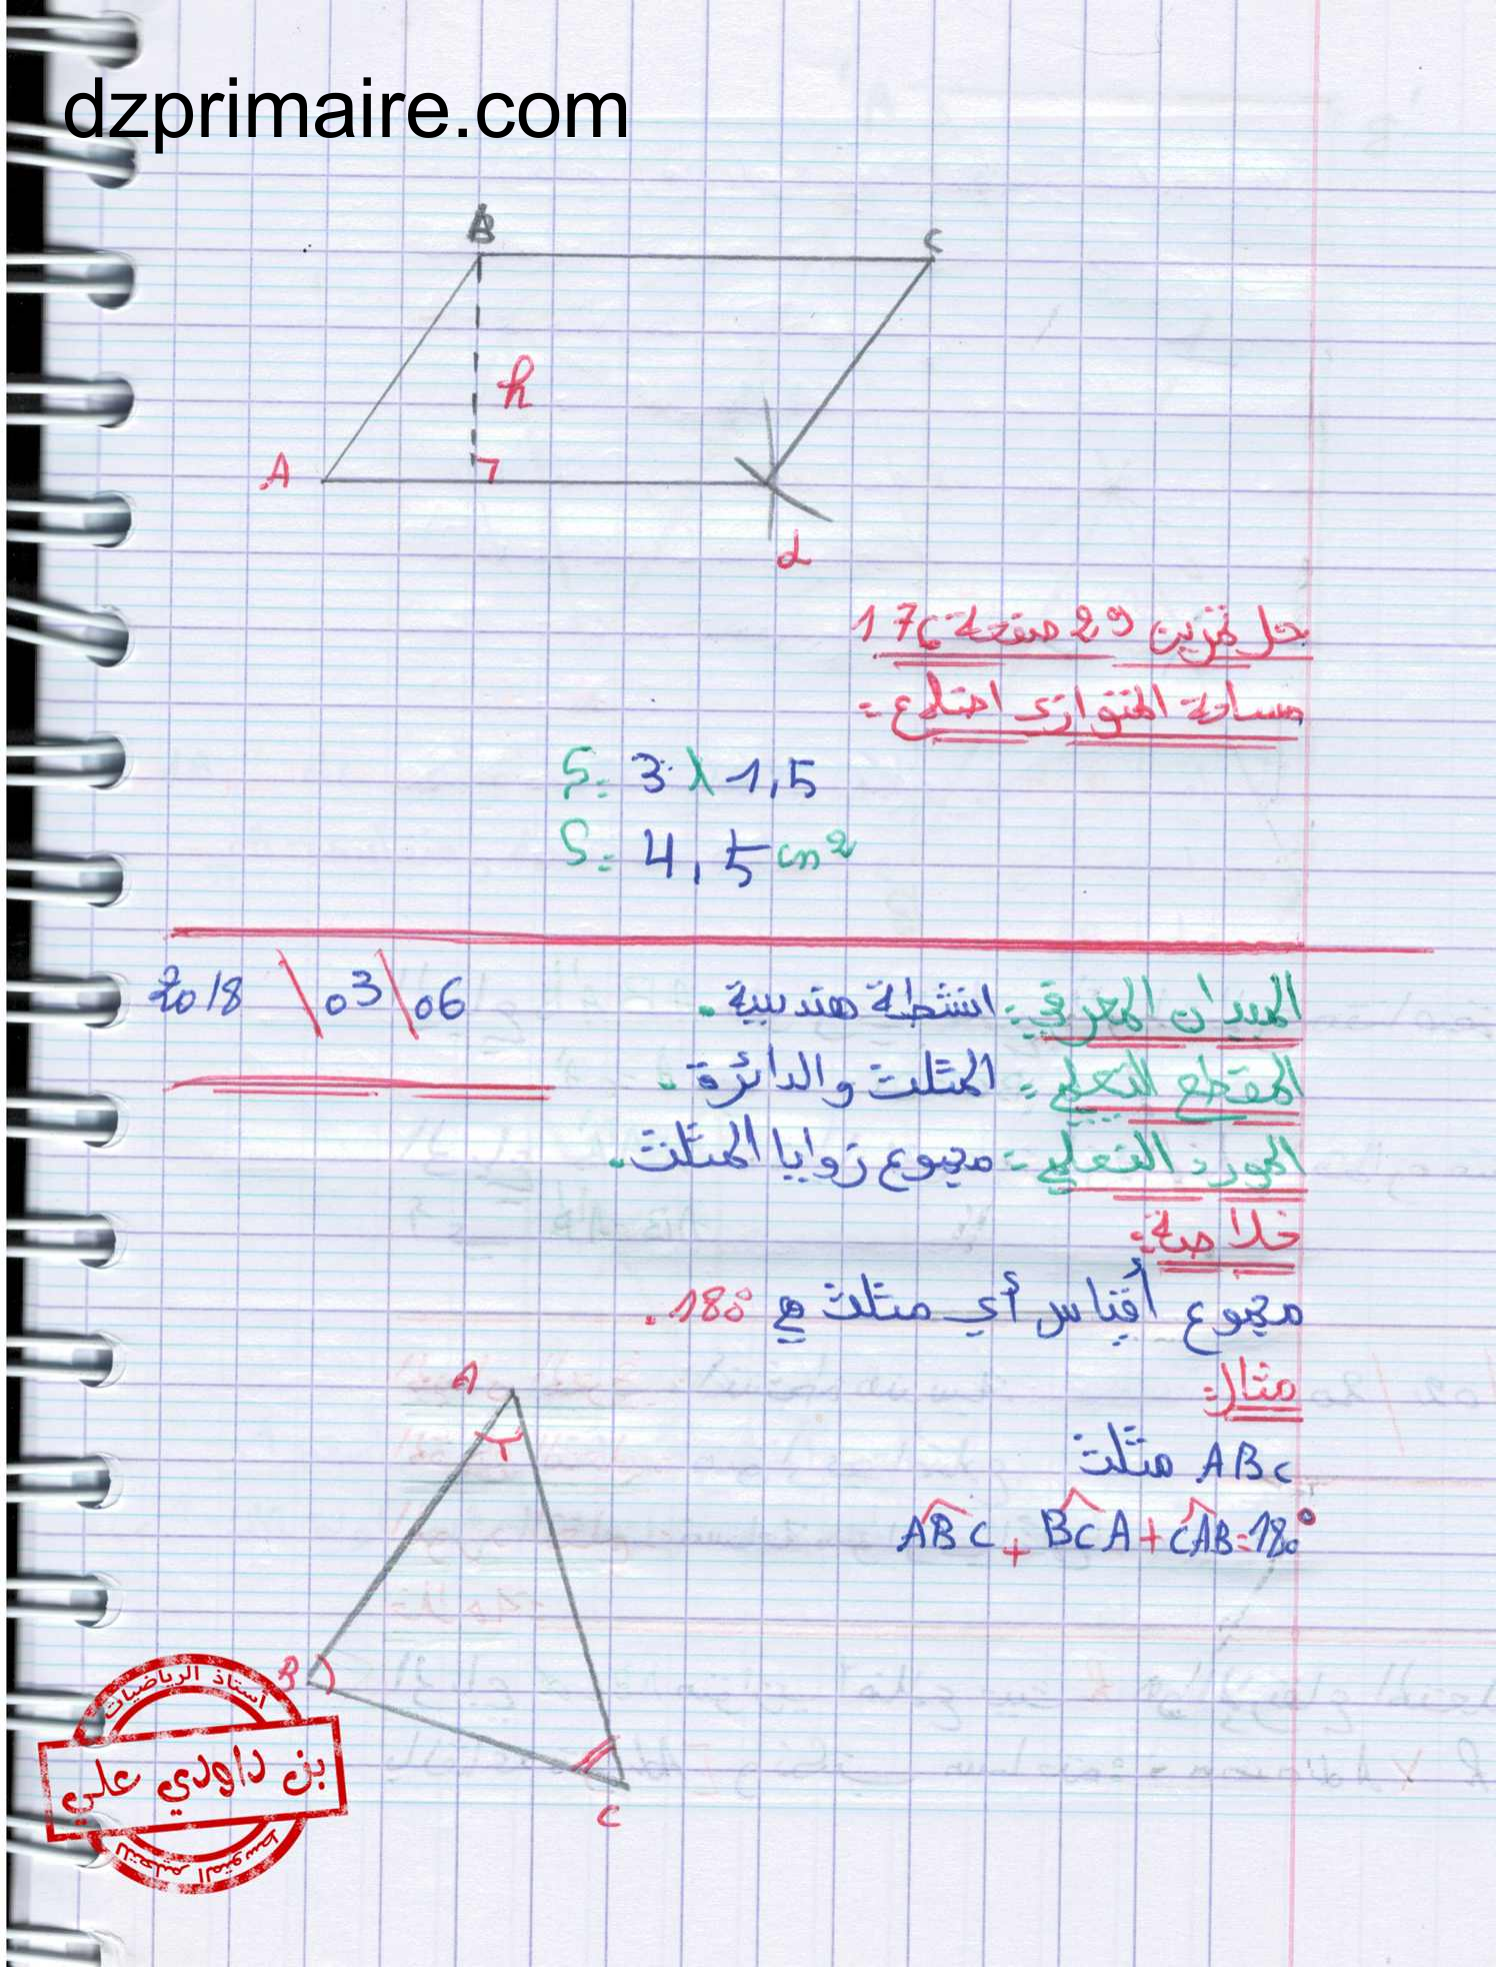 dzprimaire.com
B
C
h
A
d
حل تمرين 29 صفحة 176
مساحة المتوازي اضلاع:
S = 3 x 1,5
S = 4,5 cm²
الميدان المعرفي: انشطة هندسية. 2018 \ 03 \ 06
المقطع التعلمي: المثلث والدائرة.
المورد التعلمي: مجموع زوايا المثلث.
خلاصة:
مجموع أقياس أي مثلث هي 180°.
مثال:
ABC مثلث
ABC + BCA + CAB = 180°
A
B
C
أستاذ الرياضيات
بن داودي علي
للتعليم المتوسط